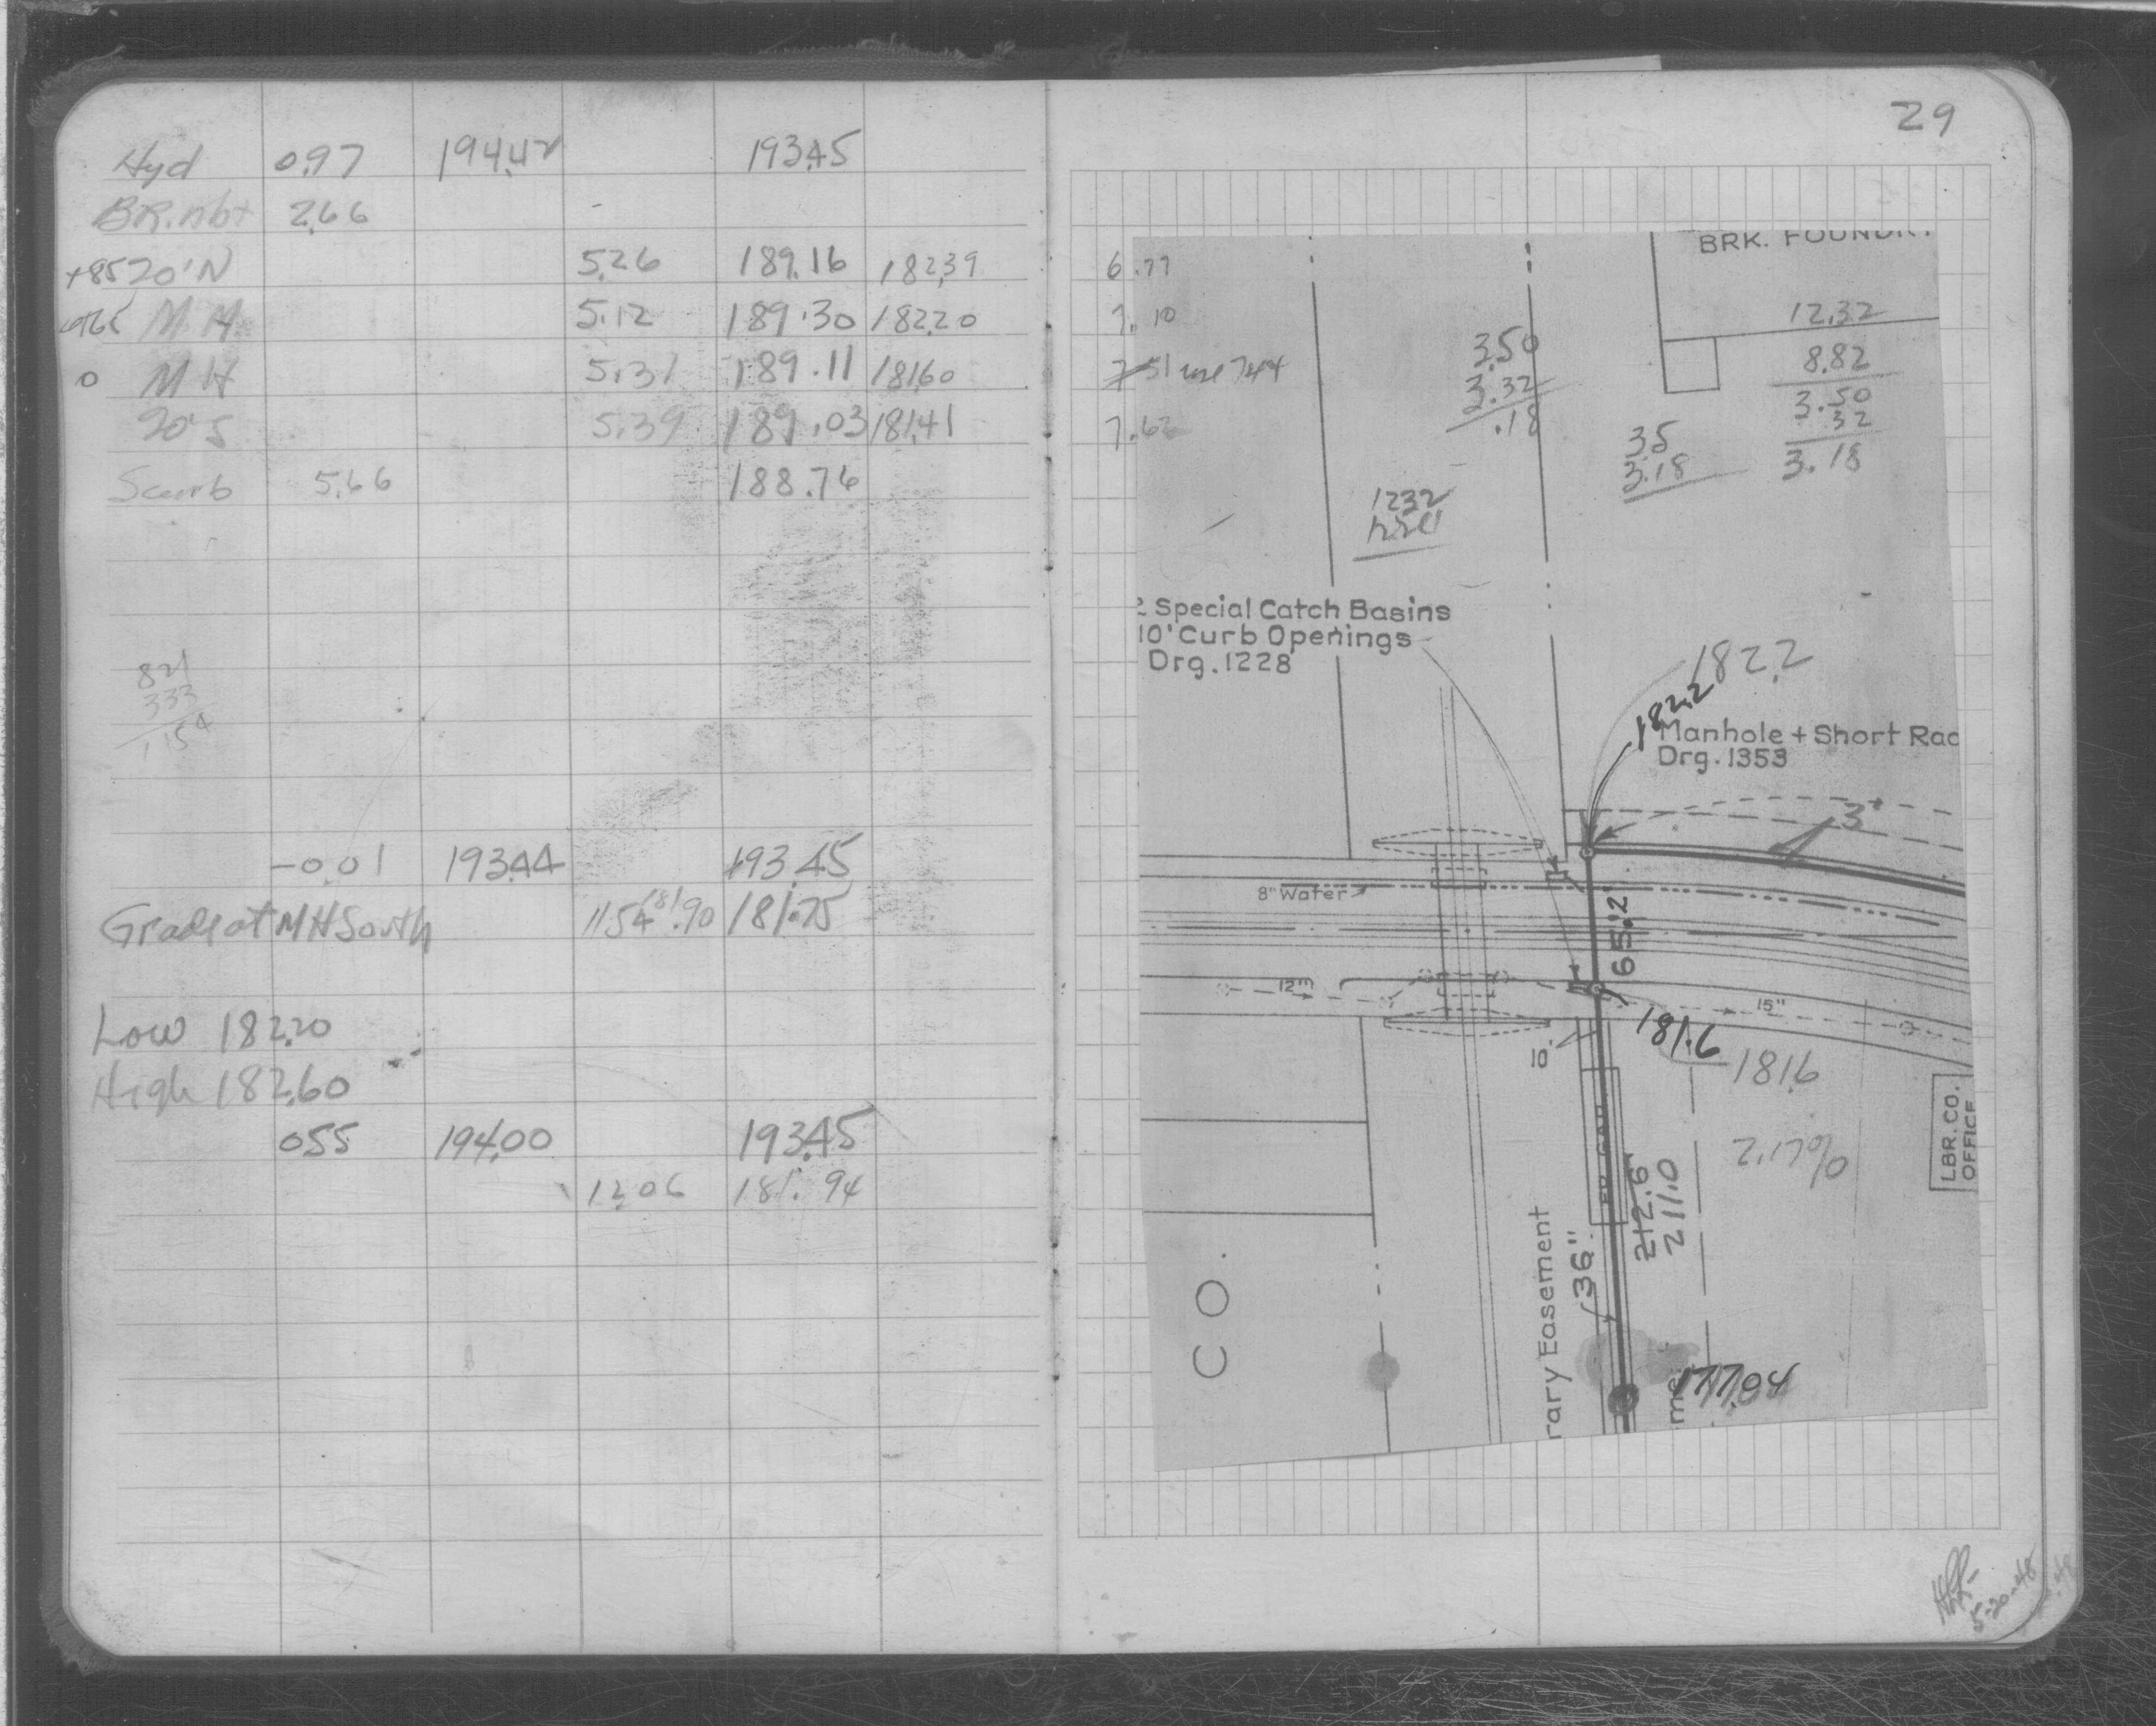 29
Hyd 0.97 194.42 193.45
BR.nbt 2.66
+85 20'N 5.26 189.16 182.39 6.77
M.H. 5.12 189.30 182.20 7.10
0 MH 5.31 189.11 181.60 7.51 use 7.44
20'S 5.39 189.03 181.41 7.62
Scurb 5.66 188.76
821
333
1154
-0.01 193.44 193.45
Grade at MH South 11.54 181.90 181.75
Low 182.20
High 182.60
0.55 194.00 193.45
12.06 181.94
BRK. FOUNDRY
12.32
8.82
3.50
.32
3.18
3.50
3.32
.18
35
3.18
1232
2 Special Catch Basins
10' Curb Openings
Drg. 1228
182.2
182.2
Manhole + Short Rad
Drg. 1353
3'
8" Water
65.2'
12"
15"
10'
181.6
181.6
2.17%
LBR. CO.
OFFICE
212.6'
211.0
36"
rary Easement
CO.
me
177.04
5-20-48